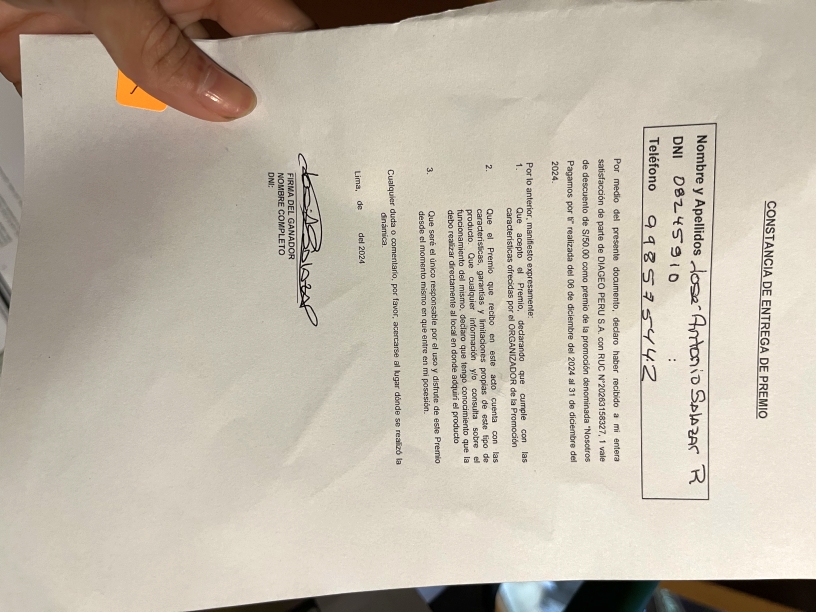 CONSTANCIA DE ENTREGA DE PREMIO
Nombre y Apellidos José Antonio Salazar R
DNI 08245910 :
Teléfono 998575442
Por medio del presente documento, declaro haber recibido a mi entera
satisfacción de parte de DIAGEO PERU S.A. con RUC N°20263158327, 1 vale
de descuento de S/50.00 como premio de la promoción denominada "Nosotros
Pagamos por ti" realizada del 06 de diciembre del 2024 al 31 de diciembre del
2024.
Por lo anterior, manifiesto expresamente:
1. Que acepto el Premio, declarando que cumple con las
características ofrecidas por el ORGANIZADOR de la Promoción
2. Que el Premio que recibo en este acto cuenta con las
características, garantías y limitaciones propias de este tipo de
producto. Que cualquier información y/o consulta sobre el
funcionamiento del mismo, declaro que tengo conocimiento que la
debo realizar directamente al local en donde adquirí el producto
3. Que seré el único responsable por el uso y disfrute de este Premio
desde el momento mismo en que entre en mi posesión.
Cualquier duda o comentario, por favor, acercarse al lugar dónde se realizó la
dinámica
Lima, de del 2024
José A Salazar
FIRMA DEL GANADOR
NOMBRE COMPLETO
DNI: